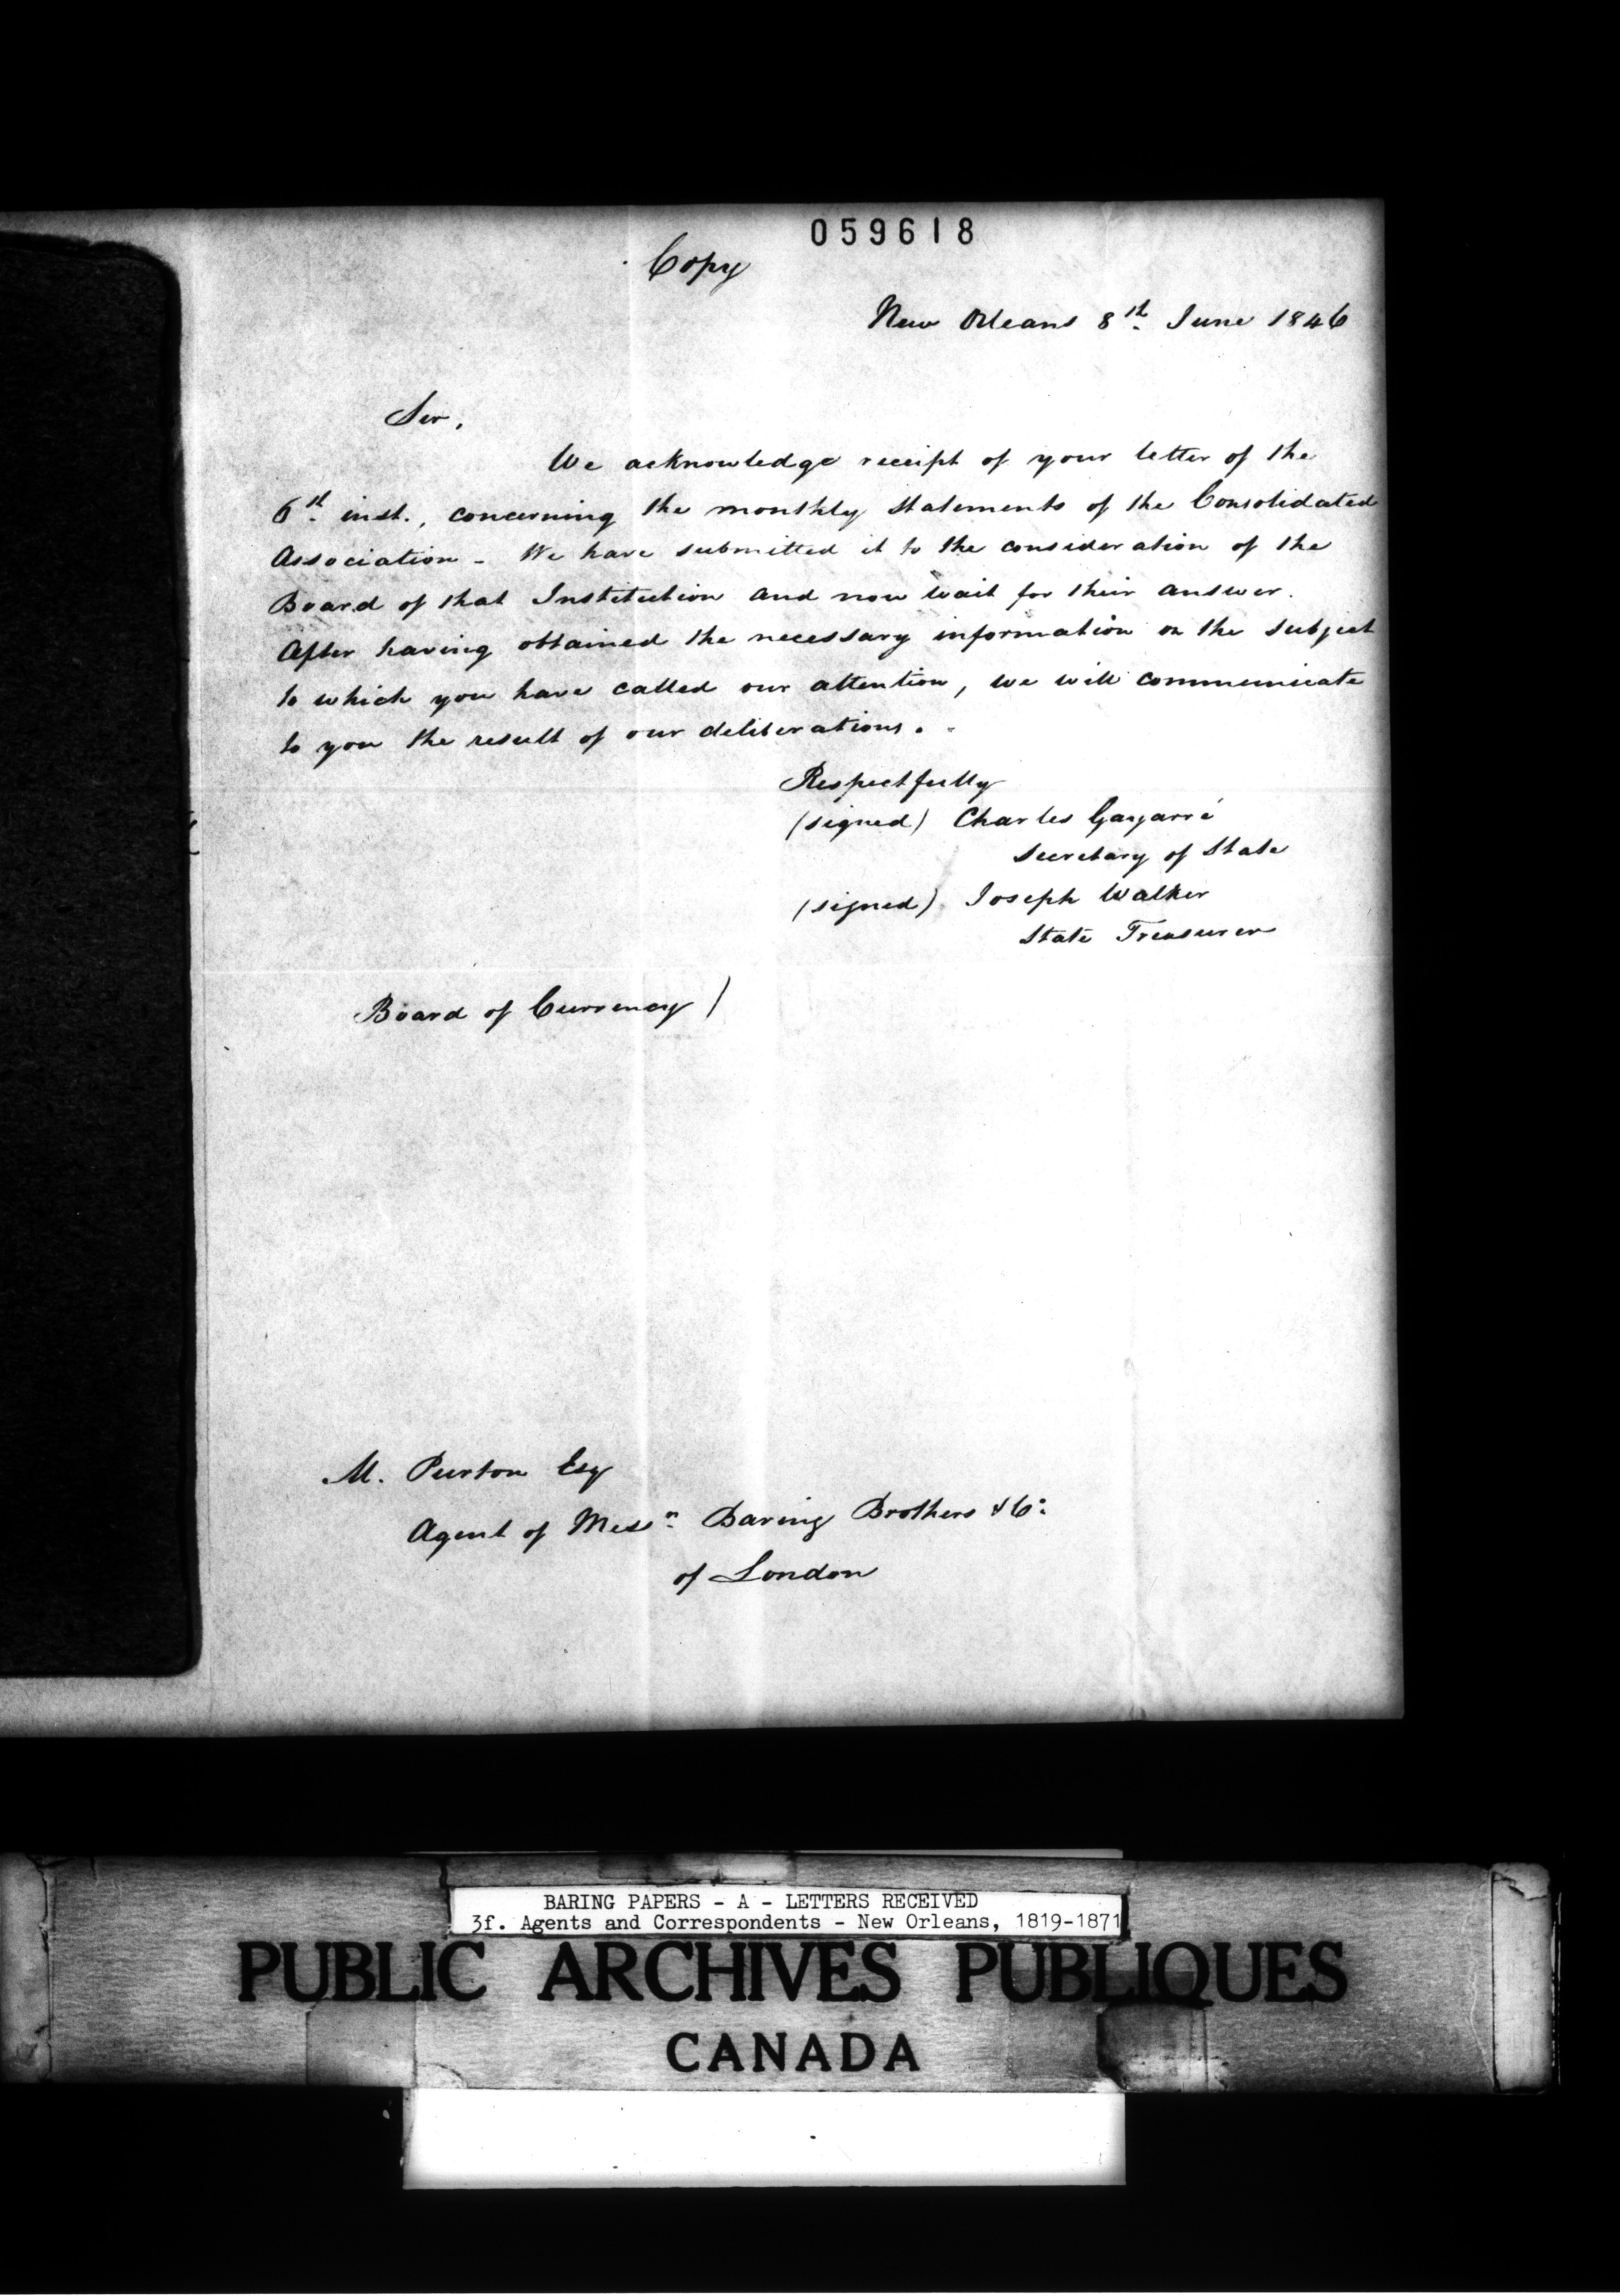 059618
Copy
New Orleans 8th June 1846
Sir,
We acknowledge receipt of your letter of the
6th inst., concerning the monthly statements of the Consolidated
Association - We have submitted it to the consideration of the
Board of that Institution and now wait for their answer.
After having obtained the necessary information on the subject
to which you have called our attention, we will communicate
to you the result of our deliberations.
Respectfully
(signed) Charles Gayarré
Secretary of State
(signed) Joseph Walker
State Treasurer
Board of Currency )
M. Purton Esq
Agent of Messrs Baring Brothers & Co
of London
BARING PAPERS - A - LETTERS RECEIVED
3f. Agents and Correspondents - New Orleans, 1819-1871
PUBLIC ARCHIVES PUBLIQUES
CANADA